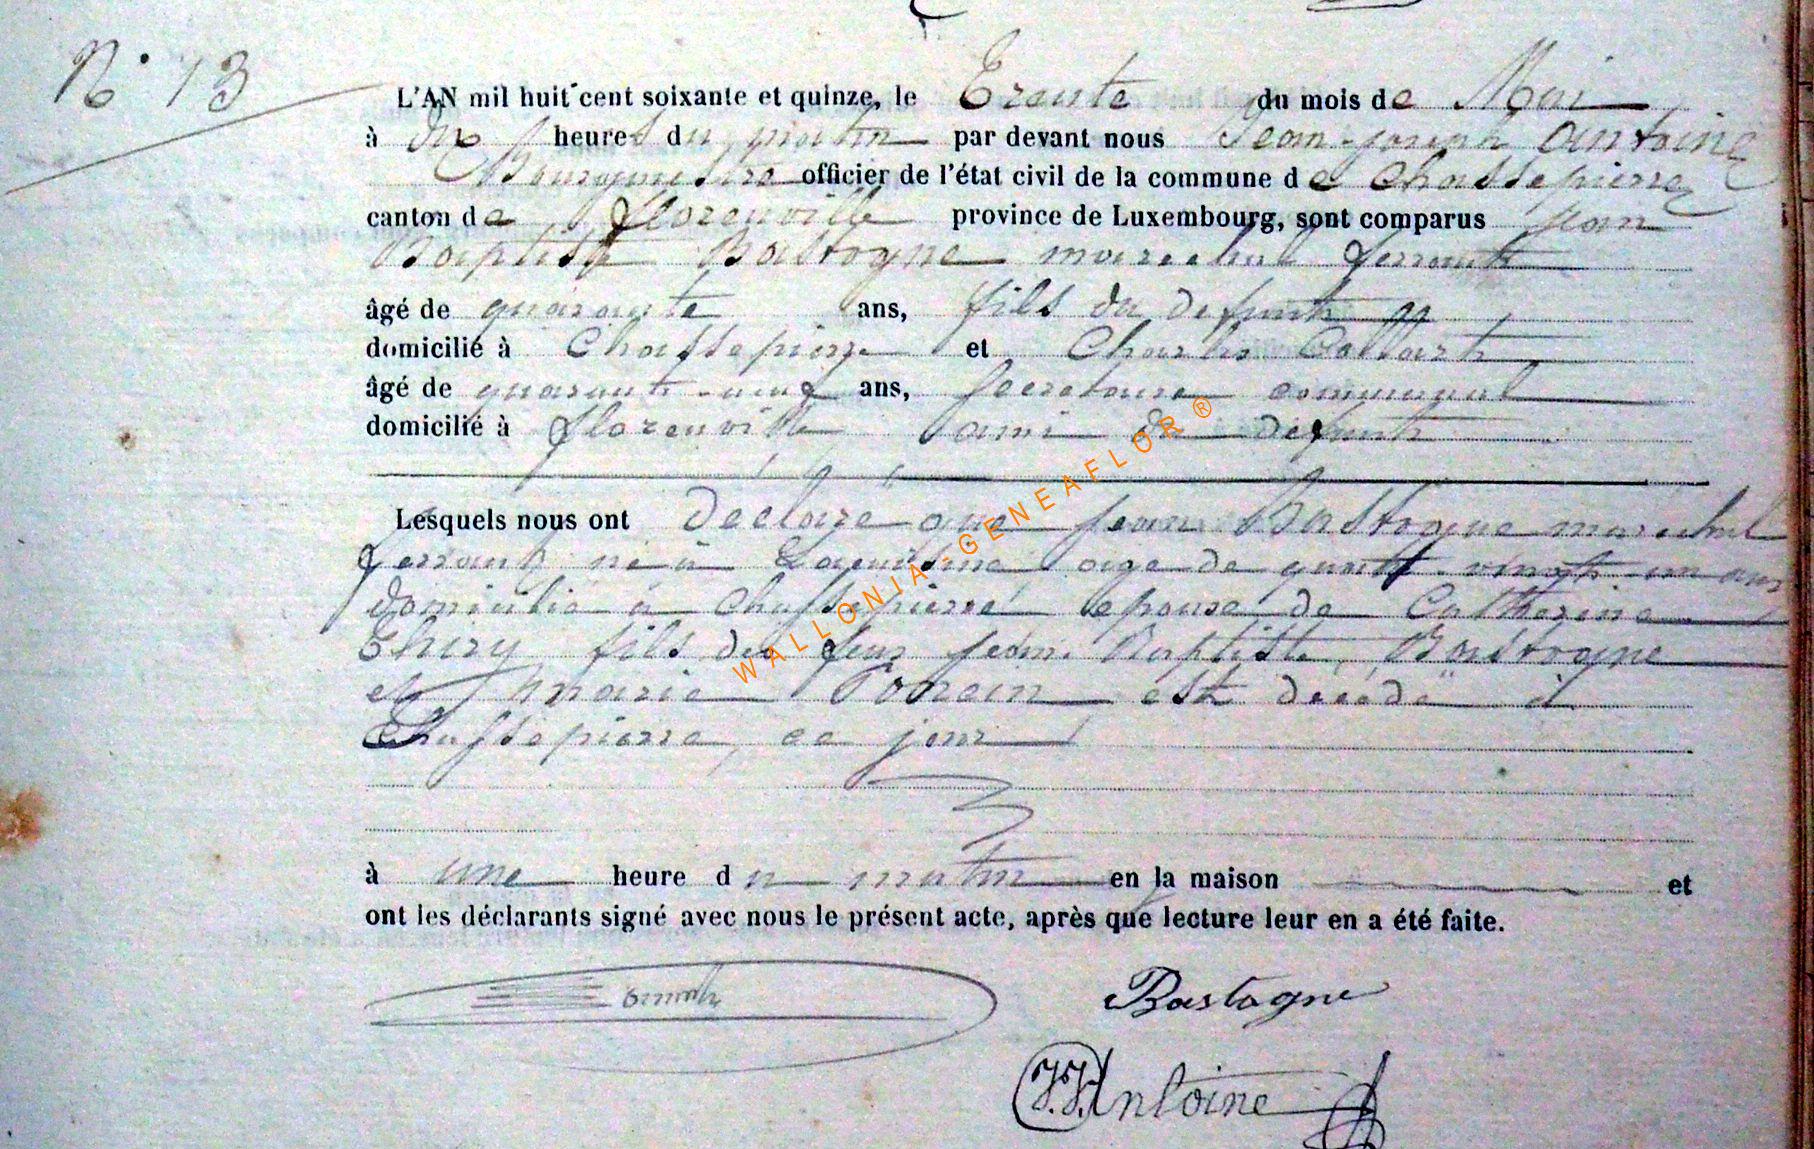 N° 13
L'AN mil huit cent soixante et quinze, le Trente du mois de Mai
à dix heures du matin par devant nous Jean-joseph Antoine
Bourgmestre officier de l'état civil de la commune de Chassepierre
canton de florenville province de Luxembourg, sont comparus jean
Baptiste Bastogne marechal ferrant
âgé de quarante ans, fils du defunt
domicilié à Chassepierre et Charles
âgé de quarante-neuf ans, secretaire communal
domicilié à florenville ami du defunt
Lesquels nous ont déclaré que jean Bastogne marechal
ferrant né à age de quatre vingt un ans
domicilié à Chassepierre epouse de Catherine
Thiry fils de feu jean Baptiste Bastogne
et marie est decedé à
Chassepierre, ce jour
à une heure du matin en la maison et
ont les déclarants signé avec nous le présent acte, après que lecture leur en a été faite.
Bastogne
J.J. Antoine
WALLONIA-GENEAFLOR ®